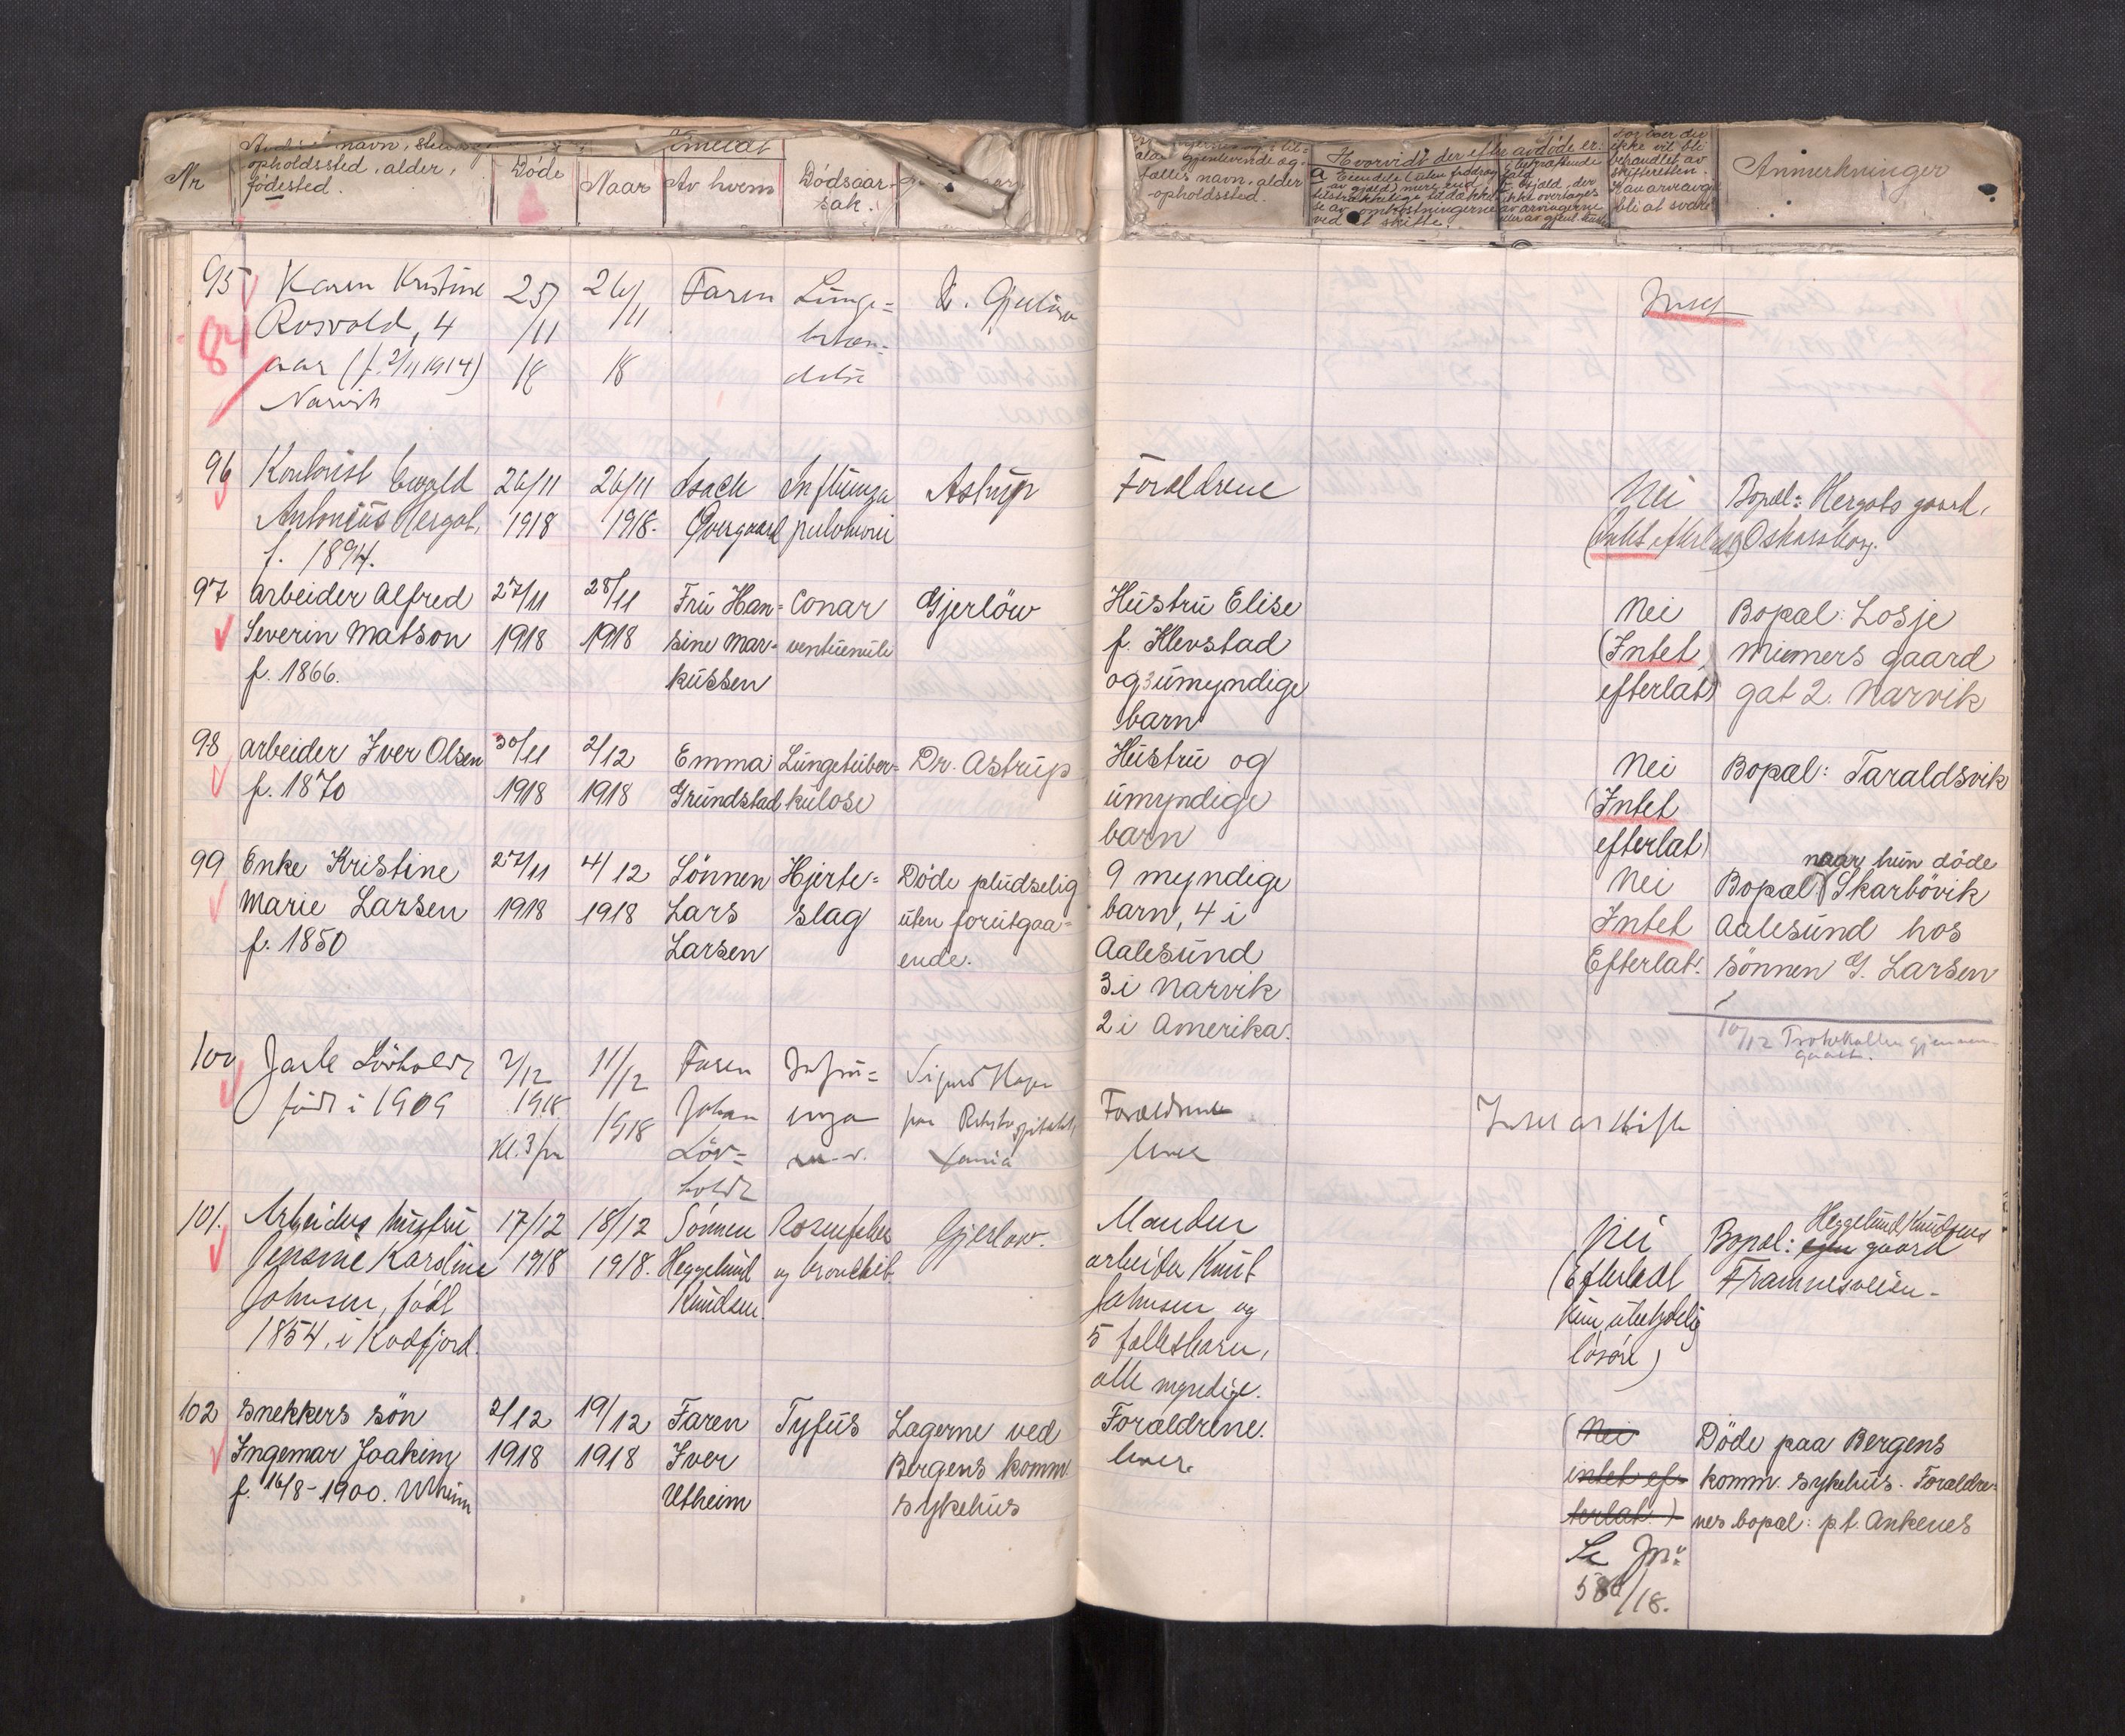 Nr
navn,
opholdssted, alder,
födested.
Döde
Naar
Av hvem
Dödsaar-
sak.
fælles navn, alder
opholdssted.
Hvorvidt der efter avdöde er:
ved et skifte.
ikke vil bli
behandlet av
skifteretten.
bli at svare
Anmerkninger
95
Karen Kristine
Rosvold, 4
aar (f. 2/11 1914)
Narvik
84
25/
/11
18
26/
/11
18
Faren
Lunge-
betæn-
delse
Intet
96
Kontorist Ewald
Antonius Hergot,
f. 1894.
26/11
1918
26/11
1918.
Isack
Overgaard
Influenza
Astrup
Forældrene
Nei
(Intet efterlatt)
Bopæl: Hergots gaard,
Oskarsborg.
97
Arbeider Alfred
Severin Matson
f. 1866.
27/11
1918
28/11
1918
Fru Han-
sine Mar-
kussen
Gjerlöw
Hustru Elise
f. Klevstad
og 3 umyndige
barn
Nei
(Intet
efterlat)
Bopæl: Losje
Mimers gaard
gat 2. Narvik
98
Arbeider Iver Olsen
f. 1870
30/11
1918
2/12
1918
Emma
Grundstad
Lungetuber-
kulose
Dr. Astrup
Hustru og
umyndige
barn
Nei
(Intet
efterlat)
Bopæl: Taraldsvik
99
Enke Kristine
Marie Larsen
f. 1850
27/11
1918
4/12
1918
Sönnen
Lars
Larsen
Hjerte-
slag
Döde pludselig
uten forutgaa-
ende.
9 myndige
barn, 4 i
Aalesund
3 i Narvik
2 i Amerika.
Nei
Intet
Efterlat.
naar hun döde
Bopæl Skarbövik
Aalesund hos
sönnen G. Larsen
10/12 Protokollen gjennem-
gaaet.
100
Jarle Lövholdt
född i 1909
2/12
1918
Kl. 3 fm
11/12
1918
Faren
Johan
Löv-
holdt
Influ-
enza
Forældrene
lever
101.
Arbeiders hustru
Jensine Karoline
Johnsen, född
1854, i Kodfjord.
17/12
1918
18/12
1918.
Sönnen
Heggelund
Knudsen.
Rosenfeber
og bronchit
Gjerlöw.
Manden
arbeider Knut
Johnsen og
5 fællesbarn,
alle myndige.
Nei
(Efterladt
kun ubetydelig
lösöre)
Heggelund Knudsens
Bopæl: egen gaard
Framnesveien.
102
Snekkers sön
Ingemar Joakim
f. 16/8-1900. Utheim
2/12
1918
19/12
1918
Faren
Iver
Utheim
Tyfus
Lægerne ved
Bergens komm.
sykehus
Forældrene.
lever.
(Nei
intet ef-
terlat.)
Se Jnr.
586/18.
Döde paa Bergens
komm. sykehus. Forældre-
nes bopæl: p.t. Ankenes